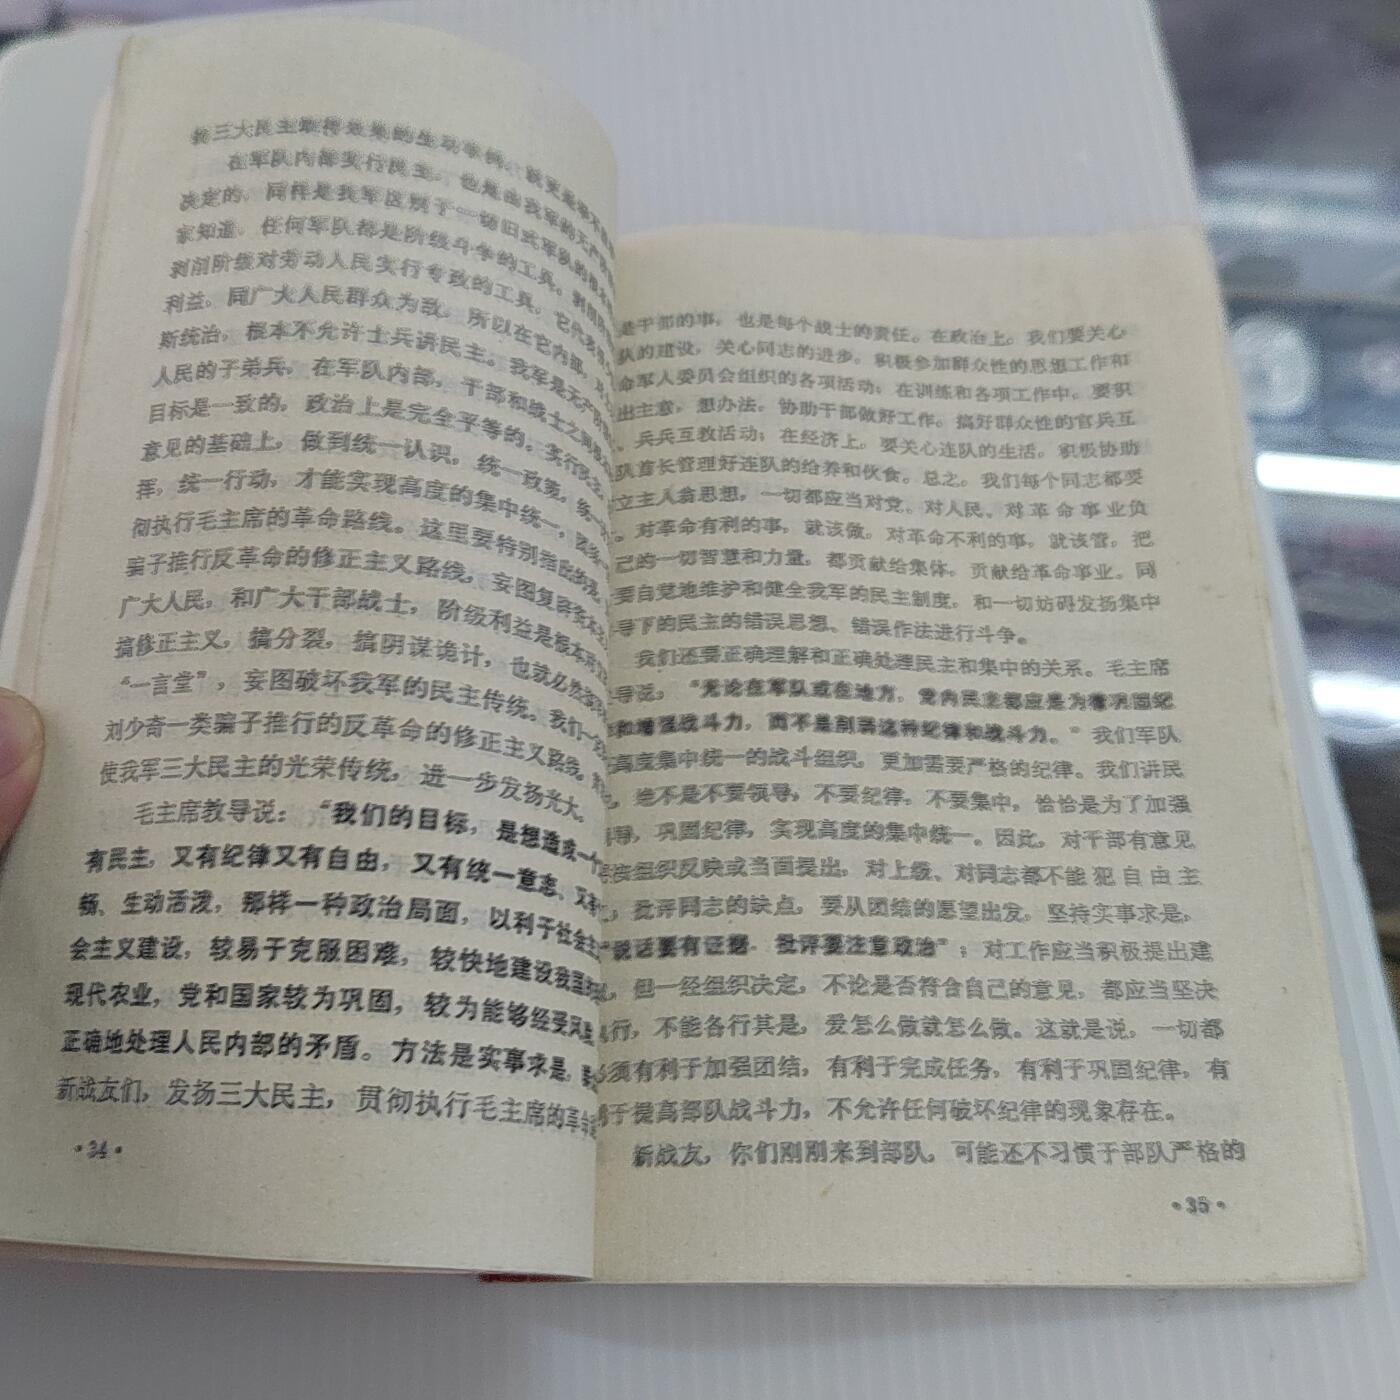 三大民主取得效果的生动事例，就更是举不
在军队内部实行民主，也是由我军的无产阶
决定的，同样是我军区别于一切旧式军队的根本
家知道，任何军队都是阶级斗争的工具。剥削
剥削阶级对劳动人民实行专政的工具，它代表
利益，同广大人民群众为敌，所以在它内部，
斯统治，根本不允许士兵讲民主。我军是无产
人民的子弟兵，在军队内部，干部和战士之间
目标是一致的，政治上是完全平等的。实行民主，
意见的基础上，做到统一认识，统一政策，统一
挥，统一行动，才能实现高度的集中统一，团结
彻执行毛主席的革命路线。这里要特别指出的是，
骗子推行反革命的修正主义路线，妄图复辟资本主
广大人民，和广大干部战士，阶级利益是根本对立
搞修正主义，搞分裂，搞阴谋诡计，也就必然
“一言堂”，妄图破坏我军的民主传统。我们一定
刘少奇一类骗子推行的反革命的修正主义路线，
使我军三大民主的光荣传统，进一步发扬光大。
毛主席教导说：“我们的目标，是想造成一个
有民主，又有纪律又有自由，又有统一意志、又有
畅、生动活泼，那样一种政治局面，以利于社会主
会主义建设，较易于克服困难，较快地建设我国
现代农业，党和国家较为巩固，较为能够经受风
正确地处理人民内部的矛盾。方法是实事求是，
新战友们，发扬三大民主，贯彻执行毛主席的革命
·34·
是干部的事，也是每个战士的责任。在政治上，我们要关心
队的建设，关心同志的进步，积极参加群众性的思想工作和
命军人委员会组织的各项活动；在训练和各项工作中，要积
出主意，想办法，协助干部做好工作，搞好群众性的官兵互
、兵兵互教活动；在经济上，要关心连队的生活，积极协助
队首长管理好连队的给养和伙食。总之，我们每个同志都要
立主人翁思想，一切都应当对党、对人民、对革命事业负
。对革命有利的事，就该做，对革命不利的事，就该管，把
己的一切智慧和力量，都贡献给集体，贡献给革命事业。同
要自觉地维护和健全我军的民主制度，和一切妨碍发扬集中
导下的民主的错误思想、错误作法进行斗争。
我们还要正确理解和正确处理民主和集中的关系。毛主席
导说：“无论在军队或在地方，党内民主都应是为着巩固纪
和增强战斗力，而不是削弱这种纪律和战斗力。”我们军队
高度集中统一的战斗组织，更加需要严格的纪律。我们讲民
，绝不是不要领导，不要纪律，不要集中，恰恰是为了加强
导，巩固纪律，实现高度的集中统一。因此，对干部有意见
按组织反映或当面提出，对上级、对同志都不能犯自由主
，批评同志的缺点，要从团结的愿望出发，坚持实事求是，
“说话要有证据，批评要注意政治”；对工作应当积极提出建
，但一经组织决定，不论是否符合自己的意见，都应当坚决
行，不能各行其是，爱怎么做就怎么做。这就是说，一切都
须有利于加强团结，有利于完成任务，有利于巩固纪律，有
于提高部队战斗力，不允许任何破坏纪律的现象存在。
新战友，你们刚刚来到部队，可能还不习惯于部队严格的
·35·